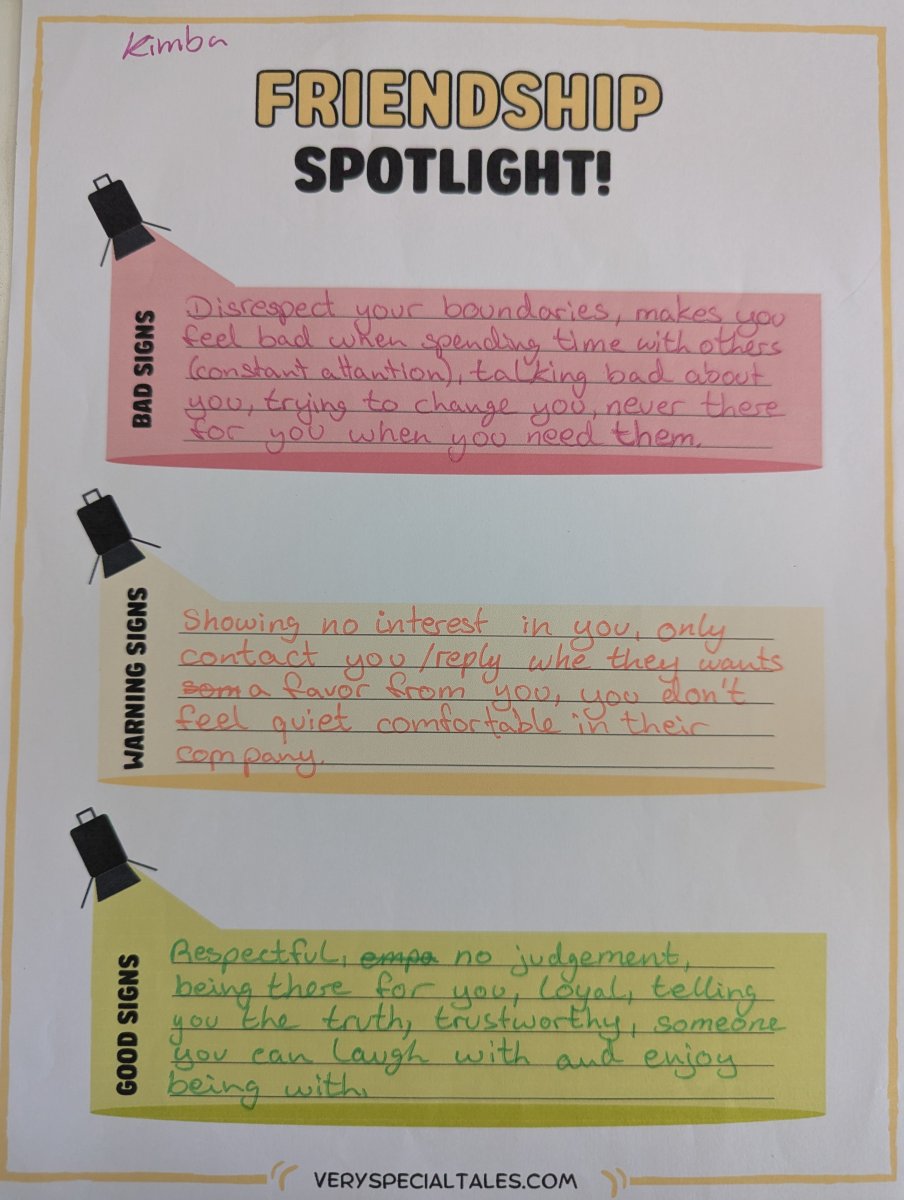 Kimba
FRIENDSHIP
SPOTLIGHT!
BAD SIGNS
Disrespect your boundaries, makes you
feel bad when spending time with others
(constant attantion), talking bad about
you, trying to change you, never there
for you when you need them.
WARNING SIGNS
Showing no interest in you, only
contact you /reply whe they wants
som a favor from you, you don't
feel quiet comfortable in their
company.
GOOD SIGNS
Respectful, empa no judgement,
being there for you, loyal, telling
you the truth, trustworthy, someone
you can laugh with and enjoy
being with.
VERYSPECIALTALES.COM